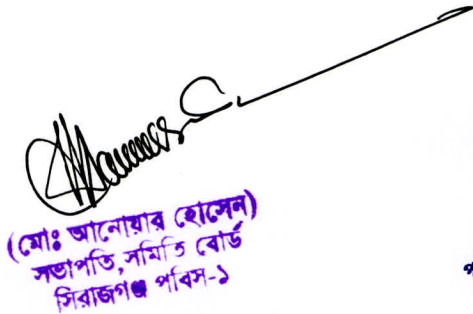 (মোঃ আনোয়ার হোসেন)
সভাপতি, সমিতি বোর্ড
সিরাজগঞ্জ পবিস-১